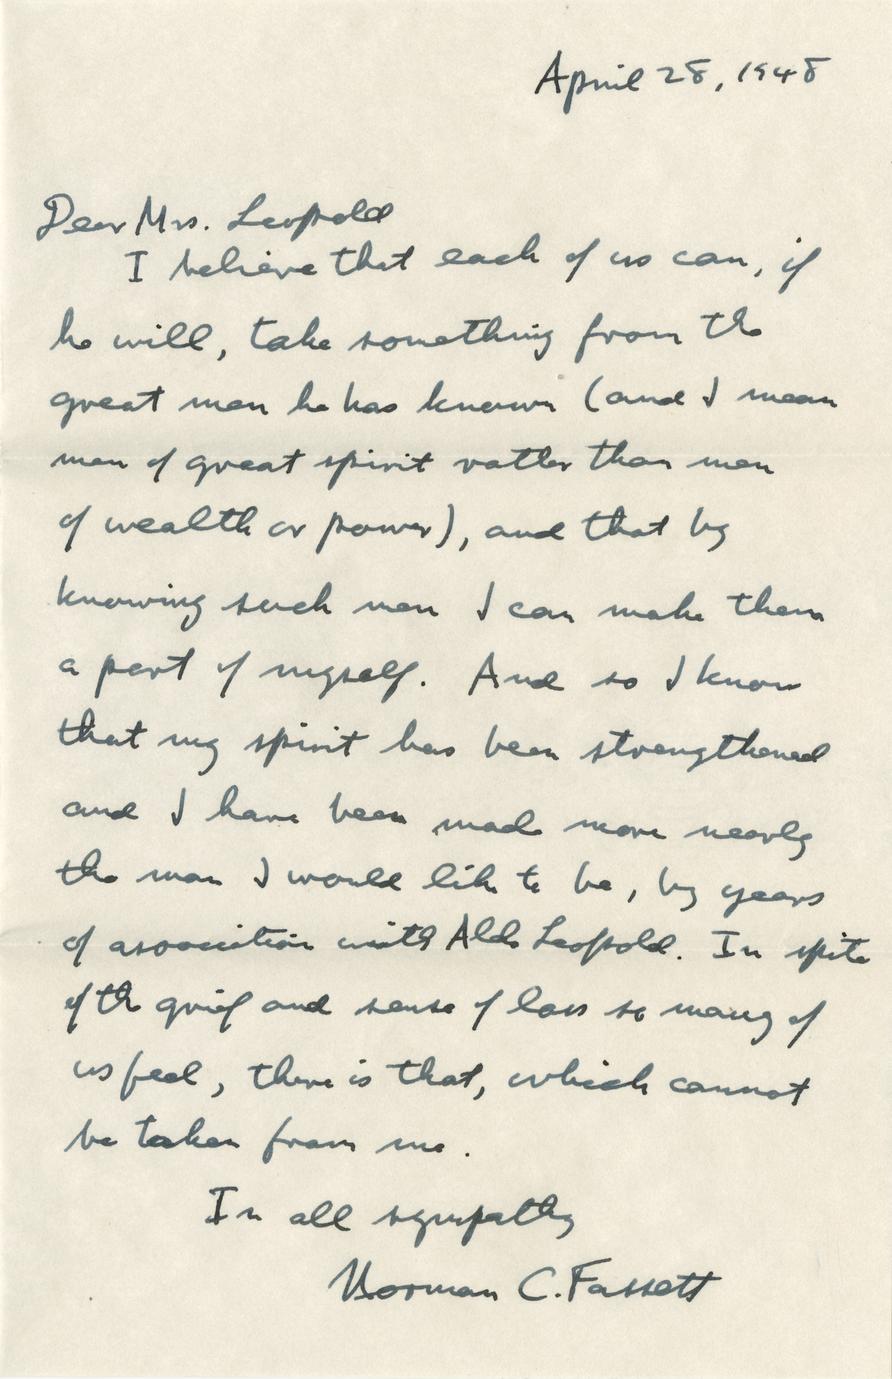 April 28, 1948
Dear Mrs. Leopold
I believe that each of us can, if
he will, take something from the
great men he has known (and I mean
men of great spirit rather than men
of wealth or power), and that by
knowing such men I can make them
a part of myself. And so I know
that my spirit has been strengthened
and I have been made more nearly
the man I would like to be, by years
of association with Aldo Leopold. In spite
of the grief and sense of loss so many of
us feel, there is that, which cannot
be taken from me.
In all sympathy
Norman C. Fassett